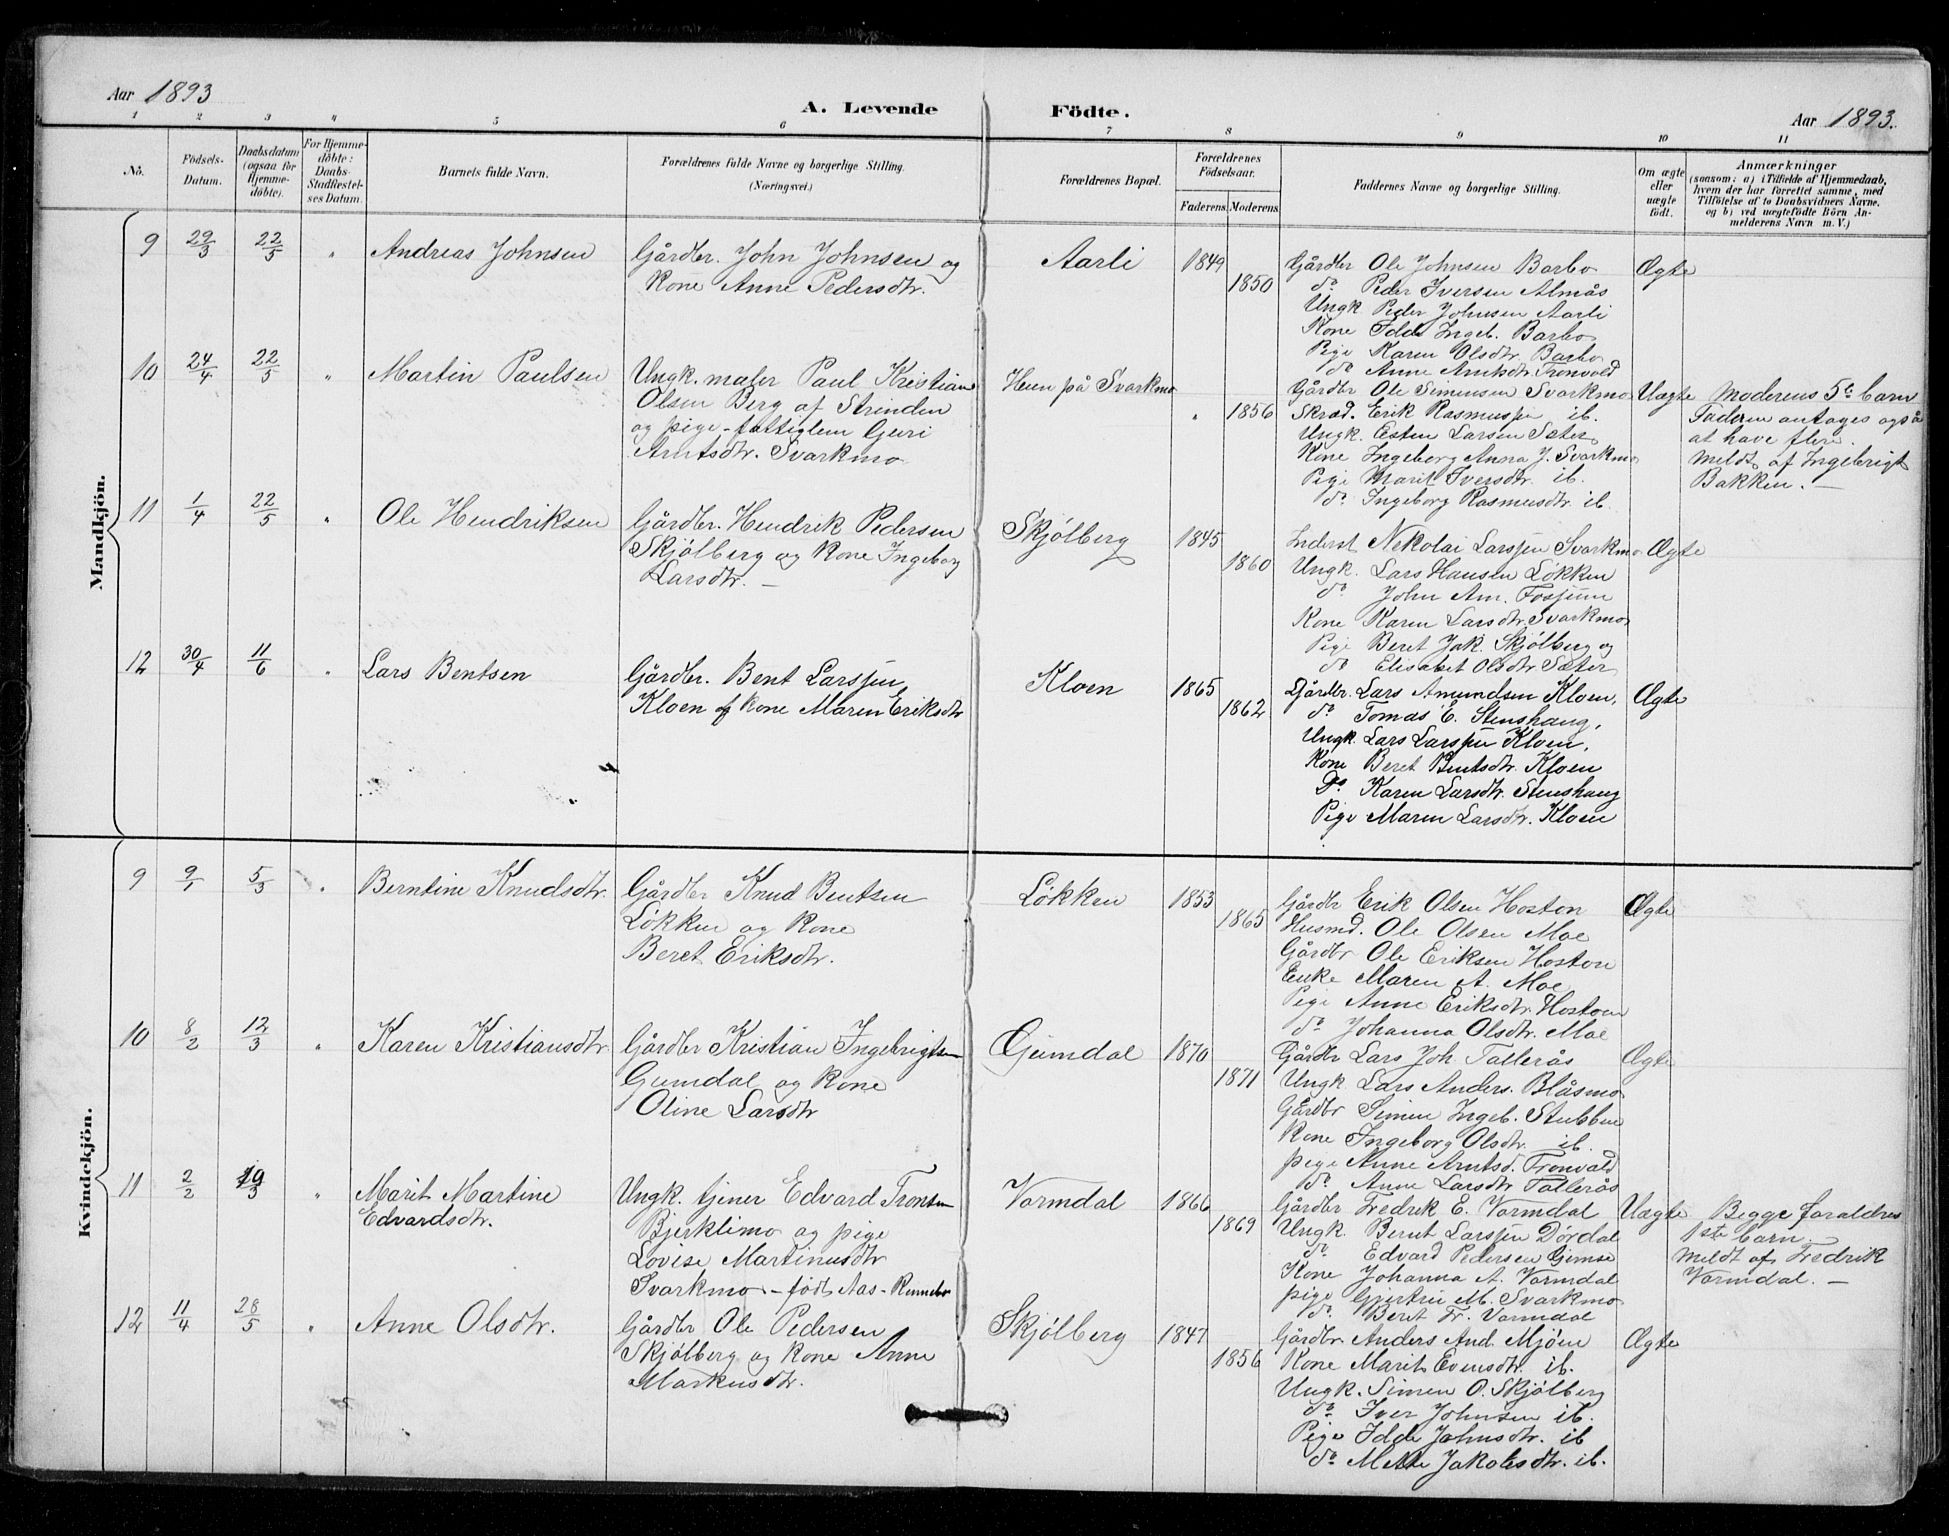 Aar 1893
A. Levende Födte.
Aar 1893.
1 2 3 4 5 6 7 8 9 10 11
No.
Födsels-Datum.
Daabsdatum (ogsaa for Hjemme-döbte).
For Hjemme-döbte: Daabs-Stadfæstel-ses Datum.
Barnets fulde Navn.
Forældrenes fulde Navne og borgerlige Stilling. (Næringsvei.)
Forældrenes Bopæl.
Forældrenes Födselsaar.
Faderens. Moderens.
Faddernes Navne og borgerlige Stilling.
Om ægte eller uægte födt.
Anmærkninger
(saasom: a) i Tilfælde af Hjemmedaab, hvem der har forrettet samme, med Tilföielse af to Daabsvidners Navne, og b) ved uægtefödte Börn An-melderens Navn m. V.)
Mandkjön.
9 29/3 22/5 " Andreas Johnsen
Gårdbr. John Johnsen og
Kone Anne Pedersdtr.
Aarli 1849 1850
Gårdbr Ole Johnsen Barbo
do Peder Iversen Almås
Ungk. Peder Johnsen Aarli
Kone Idde Ingeb. Barbo
Pige Karen Olsdtr. Barbo
do Anne Arntsdtr. Tronvold
Ægte
10 24/4 22/5 " Martin Paulsen
Ungk. maler Paul Kristian
Olsen Berg af Strinden
og pige-fattiglem Guri
Arntsdtr. Svarkmo
Hun på Svarkmo " 1856
Gårdbr Ole Simensen Svarkmo
Skræd. Erik Rasmussen ib.
Ungk. Esten Larsen Sæter
Kone Ingeborg Anna J. Svarkmo
Pige Marit Iversdtr. ib.
do Ingeborg Rasmusdtr. ib.
Uægte
Moderens 5te barn
Faderen antages også
at have flere.
Meldt af Ingebrigt
Bakken. —
11 1/4 22/5 " Ole Hendriksen
Gårdbr. Hendrik Pedersen
Skjølberg og Kone Ingeborg
Larsdtr. —
Skjølberg 1845 1860
Inderst Nekolai Larssen Svarkmo
Ungk. Lars Hansen Løkken
do John Am. Fosjum
Kone Karen Larsdtr. Svarkmo
Pige Beret Jak. Skjølberg og
do Elisabet Olsdtr. Sæter
Ægte
12 30/4 11/6 " Lars Bentsen
Gårdbr. Bent Larssen
Kloen og Kone Maren Eriksdtr
Kloen 1865 1862
Gårdbr. Lars Amundsen Kloen,
do Tomas E. Stenshaug,
Ungk. Lars Larssen Kloen,
Kone Beret Bentsdtr. Kloen
Do Karen Larsdtr. Stenshaug
Pige Maren Larsdtr. Kloen
Ægte
Kvindekjön.
9 9/1 5/3 " Berntine Knudsdtr.
Gårdbr Knud Bentsen
Løkken og Kone
Beret Eriksdtr.
Løkken 1853 1865
Gårdbr Erik Olsen Hoston
Husmd. Ole Olsen Moe
Gårdbr Ole Eriksen Hoston
Enke Maren A. Moe
Pige Anne Eriksdtr. Hoston
do Johanna Olsdtr. Moe
Ægte
10 8/2 12/3 " Karen Kristiansdtr.
Gårdbr Kristian Ingebrigtsen
Gumdal og Kone
Oline Larsdtr
Gumdal 1870 1871
Gårdbr Lars Joh Tallerås
Ungk. Lars Anders. Blåsmo
Gårdbr Simen Ingeb. Stubben
Kone Ingeborg Olsdtr. ib.
pige Anne Arntsd. Tronvold
do Anne Larsdtr Tallerås
Ægte
11 2/2 19/3 " Marit Martine
Edvardsdtr.
Ungk. tjener Edvard Tronsen
Bjerklimo og pige
Lovise Martinusdtr
Svarkmo - født Aas-Rennebo
Vormdal 1866 1869
Gårdbr Fredrik E. Vormdal
Ungk. Bernt Larssen Dørdal
do Edvard Pedersen Gimse
Kone Johanna A. Vormdal
pige Gjertru M. Svarkmo
do Beret Fr. Vormdal
Uægte
Begge foraldres
1ste barn.
Meldt af Fredrik
Vormdal. —
12 11/4 28/5 " Anne Olsdtr.
Gårdbr Ole Pedersen
Skjølberg og Kone Anne
Markusdtr.
Skjølberg 1847 1856
Gårdbr. Anders And. Mjøen
Kone Marit Evensdtr. ib.
Ungk. Simen O. Skjølberg
do Iver Johnsen ib.
Pige Idde Johnsdtr. ib
do Mette Jakobsdtr. ib.
Ægte